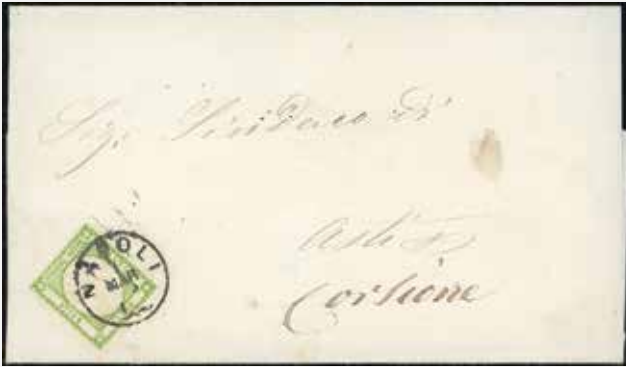 Sig. Sindaco di
Asti
Corsione
NAPOLI